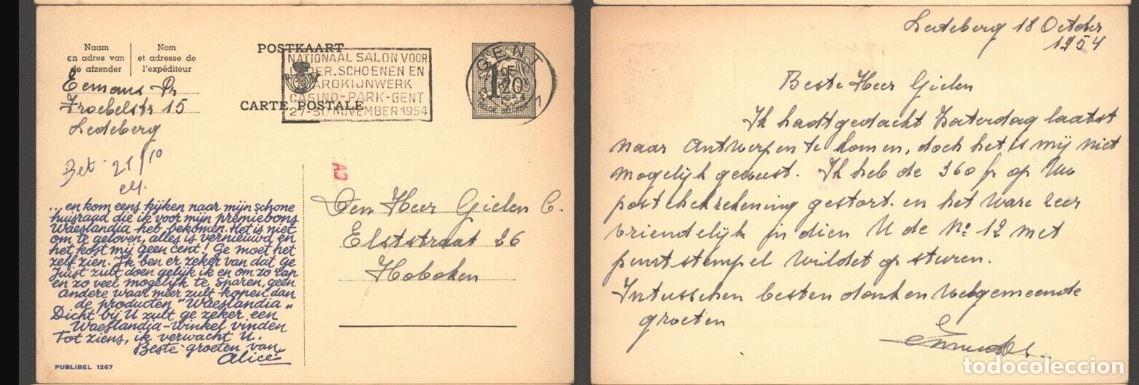 Naam
en adres van
de afzender
Nom
et adresse de
l'expéditeur
POSTKAART
CARTE POSTALE
NATIONAAL SALON VOOR
SCHOENEN EN
MAROKIJNWERK
CASINO-PARK-GENT
27-30 NOVEMBER 1954
GENT
1 20
Eemans Pr
Froebelstr 15
Ledeberg
Bet 21/10
A2
Den Heer Gielen C.
Elststraat 26
Hoboken
...en kom eens kijken naar mijn schone
huisraad die ik voor mijn premiebons
Waeslandia heb bekomen. Het is niet
om te geloven, alles is vernieuwd en
het kost mij geen cent! Ge moet het
zelf zien. Ik ben er zeker van dat ge
juist zult doen gelijk ik en om zo rap
en zo veel mogelijk te sparen, geen
andere waar meer zult kopen dan
de producten "Waeslandia"
Dicht bij U zult ge zeker een
Waeslandia-winkel vinden
Tot ziens, ik verwacht U.
Beste groeten van
Alice
PUBLIBEL 1267
Ledeberg 18 October
1954
Beste Heer Gielen
Ik hadt gedacht Zaterdag laatst
naar Antwerpen te komen, doch het is mij niet
mogelijk geweest. Ik heb de 360 fr op Uw
postcheckrekening gestort. en het ware zeer
vriendelijk in dien U de No 12 met
puntstempel wildet op sturen.
Intusschen besten dank en welgemeende
groeten
todocoleccion